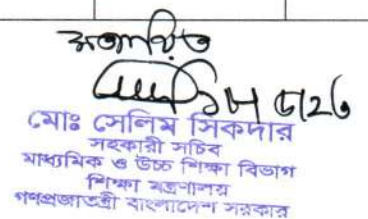 সত্যায়িত
মোঃ সেলিম সিকদার
সহকারী সচিব
মাধ্যমিক ও উচ্চ শিক্ষা বিভাগ
শিক্ষা মন্ত্রণালয়
গণপ্রজাতন্ত্রী বাংলাদেশ সরকার